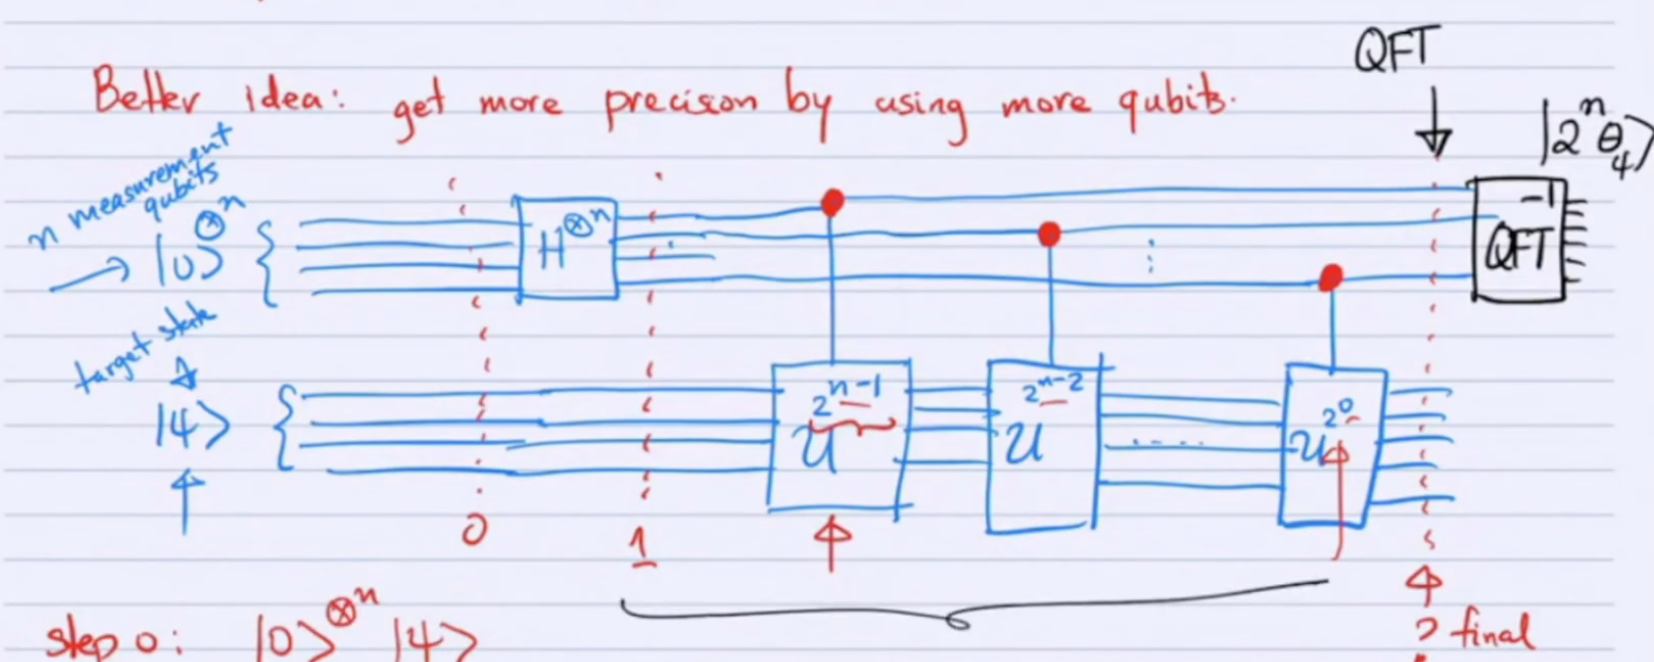 QFT
Better idea: get more precision by using more qubits.
|2ⁿθ₄⟩
n measurement
qubits
|0⟩^⊗n
H^⊗n
QFT⁻¹
target state
|ψ⟩
U^2^n-1
U^2^n-2
U^2^0
0
1
? final
step 0: |0⟩^⊗n |ψ⟩